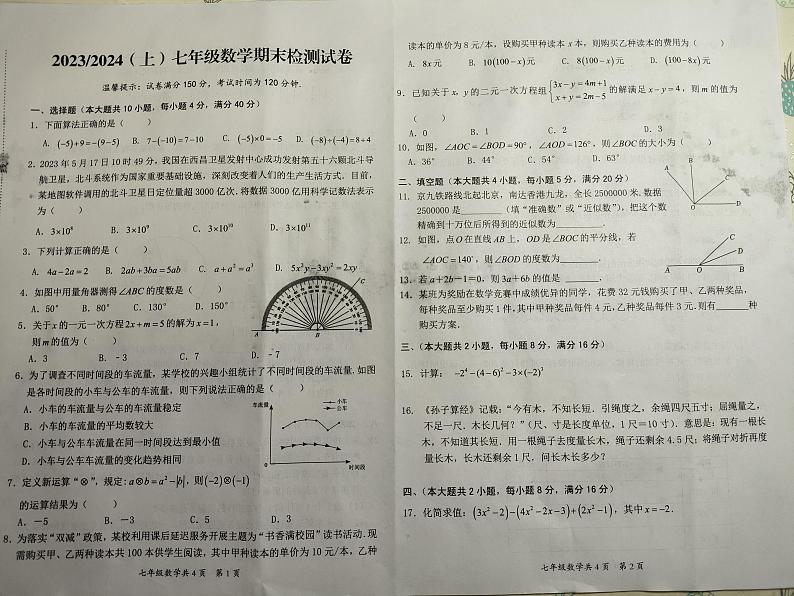 2023/2024（上）七年级数学期末检测试卷
温馨提示：试卷满分 150 分，考试时间为 120 分钟.
一、选择题（本大题共 10 小题，每小题 4 分，满分 40 分）
1．下面算法正确的是（　　）
A. (−5)+9=−(9−5)　B. 7−(−10)=7−10　C. (−5)×0=−5　D. (−8)÷(−4)=8÷4
2．2023 年 5 月 17 日 10 时 49 分，我国在西昌卫星发射中心成功发射第五十六颗北斗导
航卫星，北斗系统作为国家重要基础设施，深刻改变着人们的生产生活方式．目前，
某地图软件调用的北斗卫星日定位量超 3000 亿次．将数据 3000 亿用科学记数法表示
为（　　）
A. 3×10⁸　B. 3×10⁹　C. 3×10¹⁰　D. 3×10¹¹
3．下列计算正确的是（　　）
A. 4a−2a=2　B. 2ab+3ba=5ab　C. a+a²=a³　D. 5x²y−3xy²=2xy
4．如图中用量角器测得∠ABC 的度数是（　　）
A. 50°　B. 80°　C. 130°　D. 150°
C
A　B
5．关于 x 的一元一次方程 2x+m=5 的解为 x=1，
则 m 的值为（　　）
A. 3　B. −3　C. 7　D. −7
6．为了调查不同时间段的车流量，某学校的兴趣小组统计了不同时间段的车流量．如图
是各时间段的小车与公车的车流量，则下列说法正确的是（　　）
A．小车的车流量与公车的车流量稳定
B．小车的车流量的平均数较大
C．小车与公车车流量在同一时间段达到最小值
D．小车与公车车流量的变化趋势相同
车流量
小车
公车
0
时间段
7．定义新运算“⊗”，规定：a⊗b=a²−|b|，则(−2)⊗(−1)
的运算结果为（　　）
A. −5　B. −3　C. 5　D. 3
8．为落实“双减”政策，某校利用课后延迟服务开展主题为“书香满校园”读书活动．现
需购买甲、乙两种读本共 100 本供学生阅读，其中甲种读本的单价为 10 元/本，乙种
七年级数学共 4 页　第 1 页
读本的单价为 8 元/本，设购买甲种读本 x 本，则购买乙种读本的费用为（　　）
A. 8x 元　B. 10(100−x) 元　C. 8(100−x) 元　D. (100−8x) 元
9．已知关于 x，y 的二元一次方程组 {3x−y=4m+1
x+y=2m−5 的解满足 x−y=4，则 m 的值为
（　　）
A. 0　B. 1　C. 2　D. 3
10．如图，∠AOC=∠BOD=90°，∠AOD=126°，则∠BOC 的大小为（　　）
A. 36°　B. 44°　C. 54°　D. 63°
A　B
C
O　D
二、填空题（本大题共 4 小题，每小题 5 分，满分 20 分）
11．京九铁路线北起北京，南达香港九龙，全长 2500000 米．数据
2500000 是______（填“准确数”或“近似数”），把这个数
精确到十万位后所得到的近似数为______．
12．如图，点 O 在直线 AB 上，OD 是∠BOC 的平分线，若
∠AOC=140°，则∠BOD 的度数为______．
C
D
A　O　B
13．若 a+2b−1=0，则 3a+6b 的值是______．
14．某班为奖励在数学竞赛中成绩优异的同学，花费 32 元钱购买了甲、乙两种奖品，
每种奖品至少购买 1 件，其中甲种奖品每件 4 元，乙种奖品每件 3 元．则有______种
购买方案．
三、（本大题共 2 小题，每小题 8 分，满分 16 分）
15．计算：−2⁴−(4−6)²−3×(−2)³
16．《孙子算经》记载：“今有木，不知长短．引绳度之，余绳四尺五寸；屈绳量之，
不足一尺．木长几何？”（尺、寸是长度单位，1 尺=10 寸）．意思是：现有一根长
木，不知道其长短．用一根绳子去度量长木，绳子还剩余 4.5 尺；将绳子对折再度
量长木，长木还剩余 1 尺．问长木长多少？
四、（本大题共 2 小题，每小题 8 分，满分 16 分）
17．化简求值：(3x²−2)−(4x²−2x−3)+(2x²−1)，其中 x=−2．
七年级数学共 4 页　第 2 页